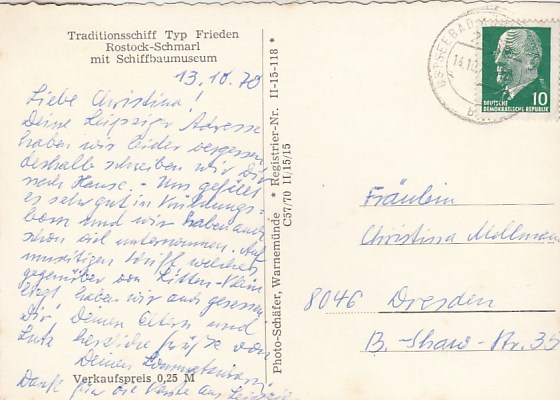 Traditionsschiff Typ Frieden
Rostock-Schmarl
mit Schiffbaumuseum
13.10.70
Liebe Christina!
Deine Leipziger Adresse
haben wir leider vergessen
deshalb schreiben wir Dir
nach Hause. - Uns gefällt
es sehr gut in
und wir haben auch
schon viel unternommen. Auf
umseitigen Schiff welches
gegenüber von Lütten-Klein
liegt haben wir auch gesessen
Dir Deinen Eltern und
Lutz herzliche Grüße von
Deinen
Dank für die Karte aus Leipzig
Verkaufspreis 0,25 M
Photo-Schäfer, Warnemünde * Registrier-Nr. II-15-118 *
C57/70 II/15/15
OSTSEEBAD
14.10.
DEUTSCHE
DEMOKRATISCHE REPUBLIK
10
Fräulein
Christina Mollman
8046 Dresden
B.-Shaw-Str. 35